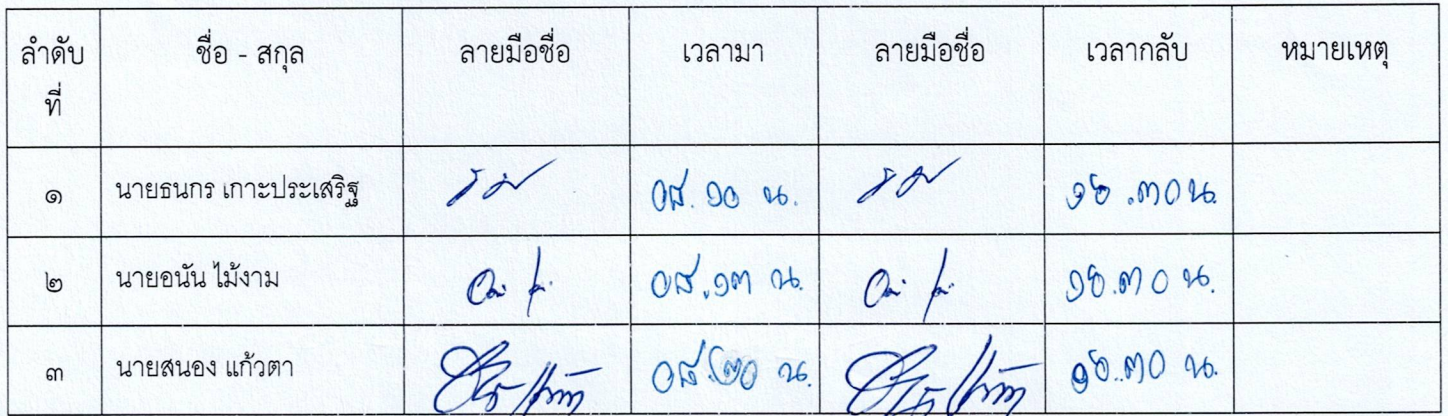 ลำดับที่ ชื่อ - สกุล ลายมือชื่อ เวลามา ลายมือชื่อ เวลากลับ หมายเหตุ
๑ นายธนกร เกาะประเสริฐ ๐๘.๑๐ น. ๑๖.๓๐ น.
๒ นายอนัน ไม้งาม ๐๘.๑๓ น. ๑๖.๓๐ น.
๓ นายสนอง แก้วตา น. ๑๖.๓๐ น.